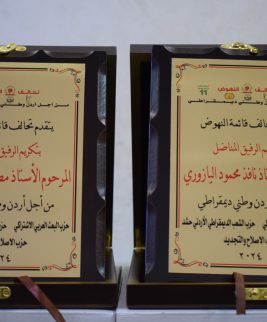 تحالف
من أجل أردن وطني
يتقدم تحالف
بتكريم الرفيق
المرحوم الأستاذ
من أجل أردن
حزب البعث العربي الاشتراكي
حزب الاصلاح
تحالف
النهوض
11
وطني ديمقراطي
قائمة النهوض
الرفيق المناضل
نافذ محمود اليازوري
أردن وطني ديمقراطي
حزب الشعب الديمقراطي الأردني حشد
الاصلاح والتجديد
٢٠٢٤